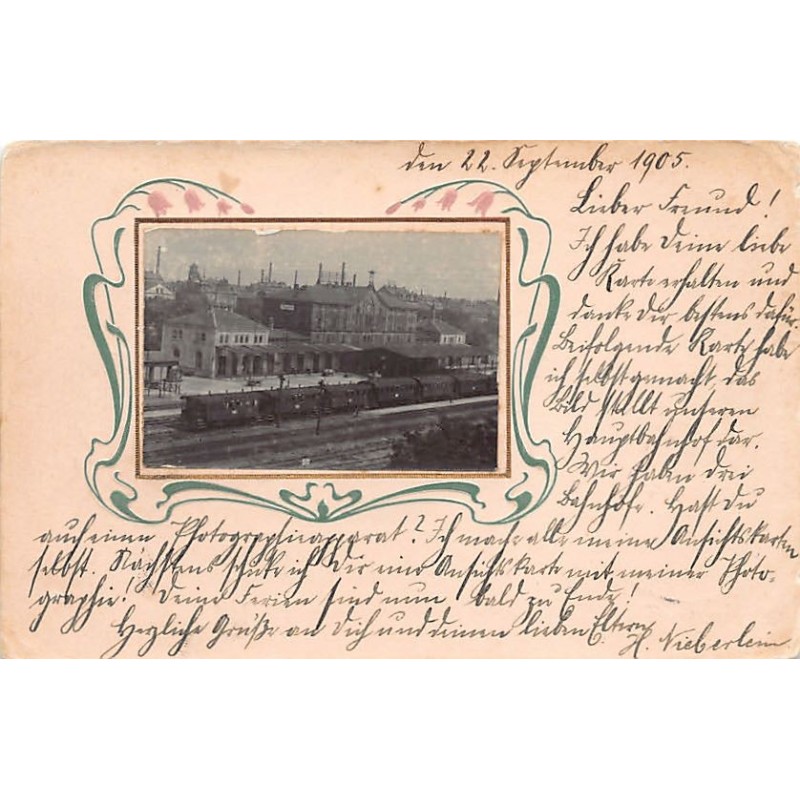 den 22. September 1905.
Lieber Freund!
Ich habe Deine liebe
Karte erhalten und
danke Dir bestens dafür.
Beifolgende Karte habe
ich selbst gemacht, das
Bild stellt unseren
Hauptbahnhof dar.
Wir haben drei
Bahnhöfe. Hast Du
auch einen Photographieapparat? Ich mache alle meine Ansichtskarten
selbst. Nächstens schicke ich Dir eine Ansichtskarte mit meiner Photo-
graphie! Deine Ferien sind nun bald zu Ende!
Herzliche Grüße an Dich und deinen lieben Eltern
H. Nieberlein